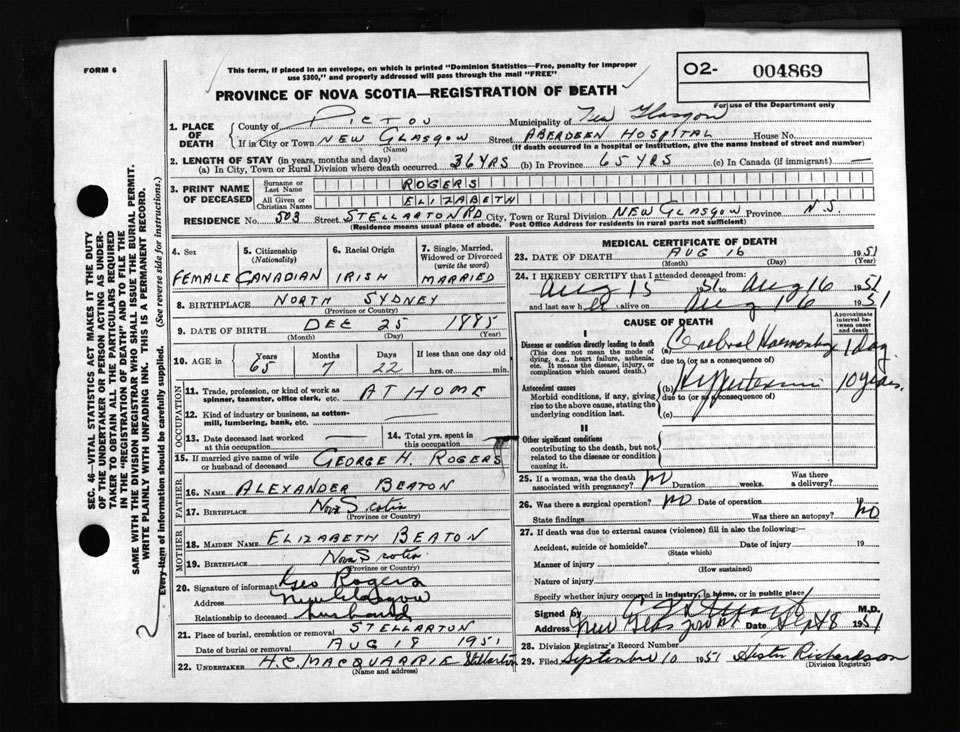 FORM 6
This form, if placed in an envelope, on which is printed "Dominion Statistics—Free, penalty for improper
use $300," and properly addressed will pass through the mail "FREE"
PROVINCE OF NOVA SCOTIA—REGISTRATION OF DEATH
O2- 004869
For use of the Department only
1. PLACE OF DEATH County of PICTOU Municipality of New Glasgow
If in City or Town NEW GLASGOW Street ABERDEEN HOSPITAL House No.
(Name) (If death occurred in a hospital or institution, give the name instead of street and number)
2. LENGTH OF STAY (in years, months and days)
(a) In City, Town or Rural Division where death occurred 36 YRS (b) In Province 65 YRS (c) In Canada (if immigrant) —
3. PRINT NAME OF DECEASED
Surname or Last Name ROGERS
All Given or Christian Names ELIZABETH
RESIDENCE No. 503 Street STELLARTON RD City, Town or Rural Division NEW GLASGOW Province N.S.
(Residence means usual place of abode. Post Office Address for residents in rural parts not sufficient)
4. Sex FEMALE
5. Citizenship (Nationality) CANADIAN
6. Racial Origin IRISH
7. Single, Married, Widowed or Divorced (write the word) MARRIED
8. BIRTHPLACE NORTH SYDNEY
(Province or Country)
9. DATE OF BIRTH DEC 25 1885
(Month) (Day) (Year)
10. AGE IN Years 65 Months 7 Days 22 If less than one day old
hrs. or min.
OCCUPATION
11. Trade, profession, or kind of work as spinner, teamster, office clerk, etc. AT HOME
12. Kind of industry or business, as cotton-mill, lumbering, bank, etc.
13. Date deceased last worked at this occupation —
14. Total yrs. spent in this occupation
15. If married give name of wife or husband of deceased GEORGE H. ROGERS
FATHER
16. NAME ALEXANDER BEATON
17. BIRTHPLACE Nova Scotia
(Province or Country)
MOTHER
18. MAIDEN NAME ELIZABETH BEATON
19. BIRTHPLACE Nova Scotia
(Province or Country)
20. Signature of informant Geo Rogers
Address New Glasgow
Relationship to deceased husband
21. Place of burial, cremation or removal STELLARTON
Date of burial or removal AUG 18 1951
22. UNDERTAKER H.C. MACQUARRIE Stellarton
(Name and address)
MEDICAL CERTIFICATE OF DEATH
23. DATE OF DEATH AUG 16 1951
(Month) (Day) (Year)
24. I HEREBY CERTIFY that I attended deceased from:
Aug 15 1951 to Aug 16 1951
and last saw her alive on Aug 16 1951
CAUSE OF DEATH
Approximate interval between onset and death
I
Disease or condition directly leading to death
(This does not mean the mode of dying, e.g., heart failure, asthenia, etc. It means the disease, injury, or complication which caused death.)
(a) Cerebral Haemorrhage 1 day
due to (or as a consequence of)
Antecedent causes
Morbid conditions, if any, giving rise to the above cause, stating the underlying condition last.
(b) Hypertension 10 years.
due to (or as a consequence of)
(c)
II
Other significant conditions
contributing to the death, but not related to the disease or condition causing it.
25. If a woman, was the death associated with pregnancy? no Duration weeks. Was there a delivery?
26. Was there a surgical operation? no Date of operation 19
State findings Was there an autopsy? no
27. If death was due to external causes (violence) fill in also the following:—
Accident, suicide or homicide? Date of injury 19
(State which)
Manner of injury
(How sustained)
Nature of injury
Specify whether injury occurred in industry, in home, or in public place
Signed by M.D.
Address New Glasgow Date Sept 8 1951
28. Division Registrar's Record Number
29. Filed September 10 1951 Hester Richardson
(Division Registrar)
SEC. 46—VITAL STATISTICS ACT MAKES IT THE DUTY
OF THE UNDERTAKER OR PERSON ACTING AS UNDER-
TAKER TO OBTAIN ALL THE PARTICULARS REQUIRED
IN THE "REGISTRATION OF DEATH" AND TO FILE THE
SAME WITH THE DIVISION REGISTRAR WHO SHALL ISSUE THE BURIAL PERMIT.
WRITE PLAINLY WITH UNFADING INK. THIS IS A PERMANENT RECORD.
Every item of information should be carefully supplied. (See reverse side for instructions.)
2